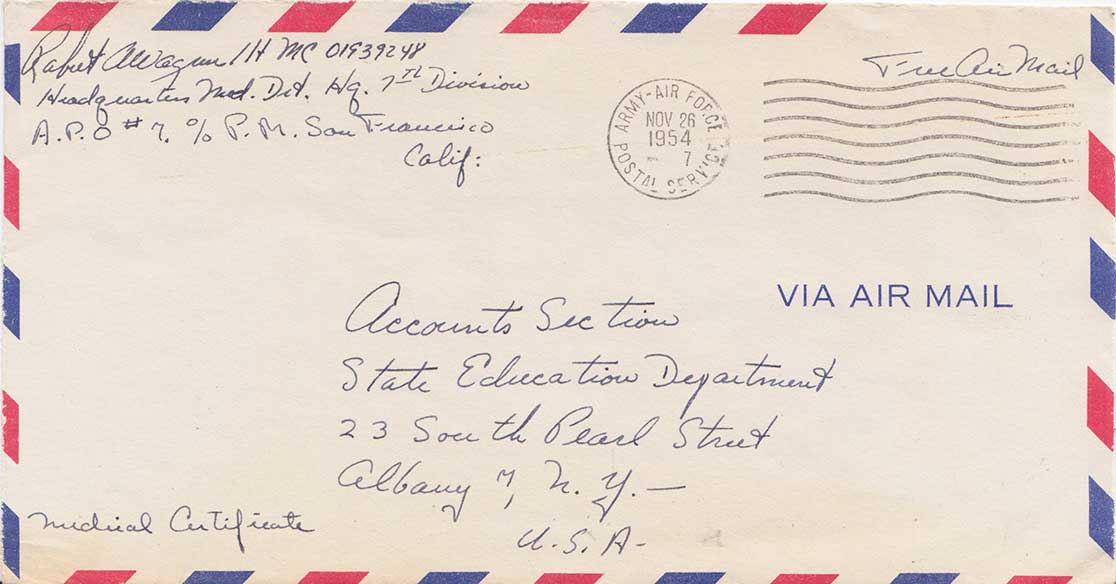 Robert A Wagner 1st Lt MC 01939248
Headquarters Med. Det. Hq. 7th Division
A.P.O # 7, c/o P.M. San Francisco
Calif:
Free Air Mail
ARMY-AIR FORCE
NOV 26
1954
7
POSTAL SERVICE
VIA AIR MAIL
Accounts Section
State Education Department
23 South Pearl Street
Albany 7, N. Y. —
U. S. A -
Medical Certificate